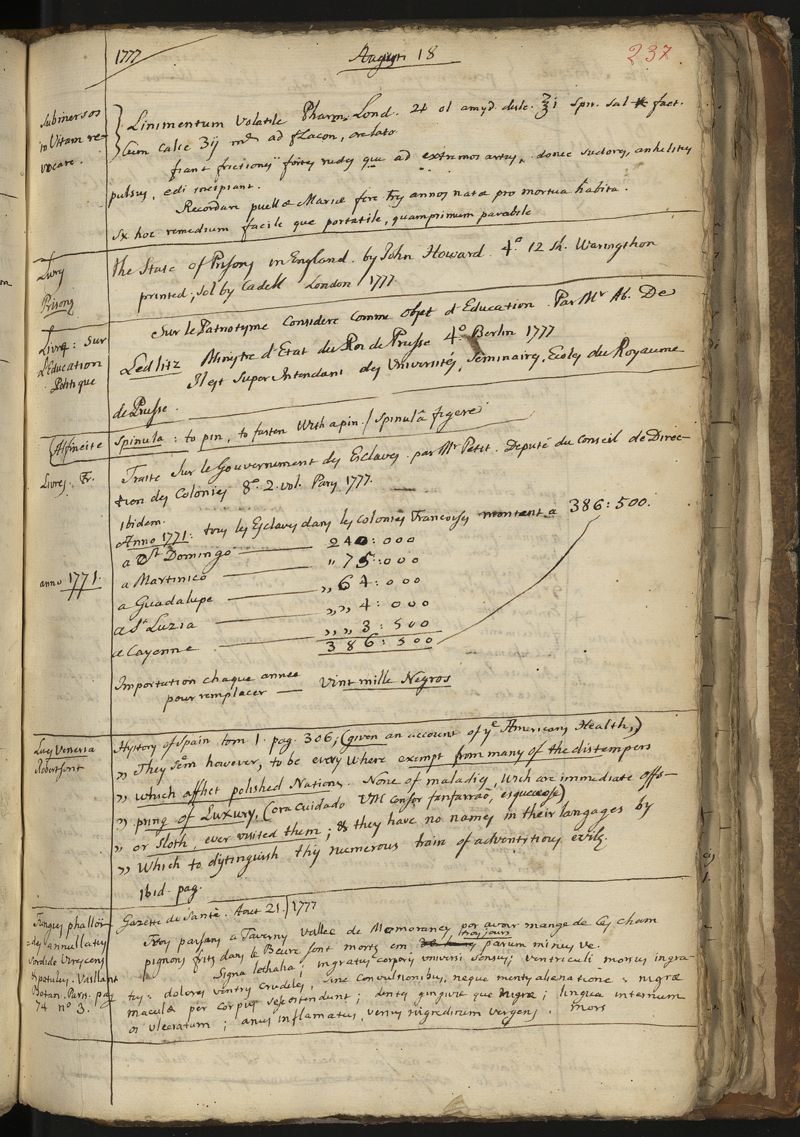 1777
August 18
237
Submersos
in Vitam re-
vocare.
Linimentum Volatile Pharm. Lond. 24 ol amyd. dulc. ℥i Spir. Sal fact.
Cum Calce ʒij ad flacon, orelato
fiant frictiones fortes rudes que ad extremos artus, donec sudores, anhelitus
pulsus, edi incipiant.
Recordare puellæ Mariæ fere tres annos natæ pro mortua habita.
Ex hoc remedium facile que portatile, quamprimum parabile
Livres
Prisons
The State of Prisons in England. by John Howard. 4.º 12 Sh. Waringthon
printed; sol by Cadell London 1777.
Livres: Sur
l'Education
Politique
Sur le Patriotisme Considere Comme objet d'Education. Par Mr Ab. De
Ledlitz Ministre d'Etat du Roi de Prusse 4.º Berlin 1777
Il est Super Intendant des Universités, Seminaires, Ecoles du Royaume
de Prusse.
Alfineite
Spinula: to pin, to fasten With a pin. / Spinulâ figere
Livres. Fr.
Traite Sur le Gouvernement des Esclaves. par Mr Petit. Deputé du Conseil de Direc-
tion des Colonies 8.º 2. vol. Paris 1777.
Ibidem.
anno 1771.
Anno 1771: tous les Esclaves dans les Colonies Francoises montent a 386:500.
a St Domingo — 240:000
a Martinico — „ 75:000
a Guadalupe — „ 64:000
a St Luzia — „ „ 4:000
a Cayenne — „ „ 3:500
386:500
Importation chaque année
pour remplacer — Vint mille Negros
Lues Venerea
Robertsont
Hystory of Spain tom 1. pag. 306; (given an account of ye Americans Health,)
„ They Seem however, to be every Where exempt from many of the distempers
„ Which afflict polished Nations. None of maladies, Wich are immediate offs-
„ pring of Luxury, (ora cuidado VM Consor fanfarraõ, esquecose)
„ or Sloth, ever visited them; & they have no names in their langages by
„ Which to distinguish this numerous train of adventitious evils.
Ibid. pag.
Fungus phalloï-
des annullatus
Sordide Virescens
et patulus. Vaillant
Botan. Paris. pag
74 nº 3.
Gazette de Santé. Aout 21. 1777
Trois paysans a Taverny Vallee de Momorancy por avoir mange de Ces Cham
pignons frits dans le Beure sont morts em trois jours parum minus ve.
Signa lethalia; ingratus corporis universi Sensus; Ventriculi morsus ingra-
tus; dolores ventris crudeles, sine Convulsionibus, neque mentis alienatione: nigræ
maculæ per Corpus Sese ostendunt; dentes gingivæ que nigræ; lingua internum
oris ulceratum; anus inflamatus, versus nigredinem vergens. mors